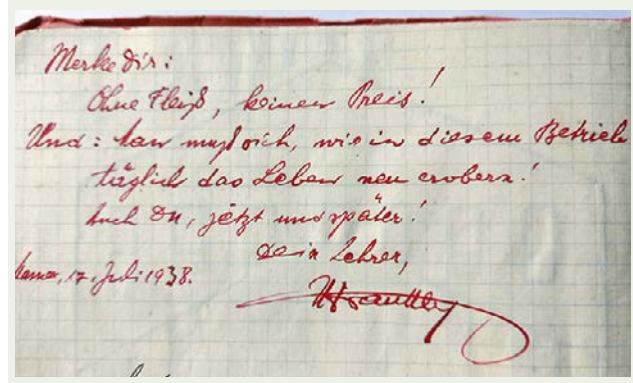 Merke Dir:
Ohne Fleiß, keinen Preis!
Und: Man muß sich, wie in diesem Betrieb
täglich das Leben neu erobern!
Auch Du, jetzt und später!
Dein Lehrer,
17. Juli 1938.